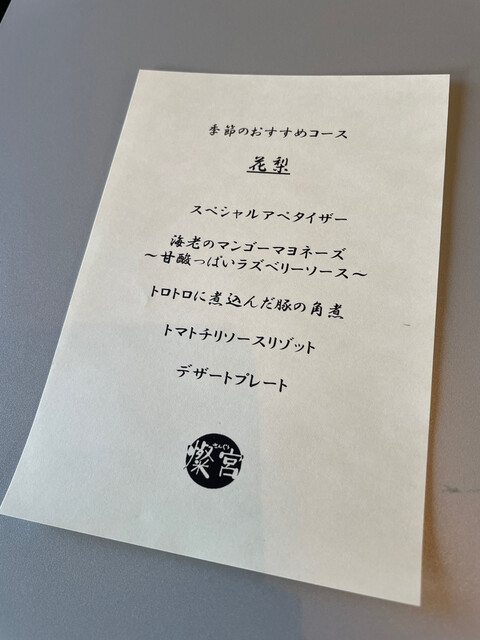 季節のおすすめコース
花梨
スペシャルアペタイザー
海老のマンゴーマヨネーズ
～甘酸っぱいラズベリーソース～
トロトロに煮込んだ豚の角煮
トマトチリソースリゾット
デザートプレート
燦宮